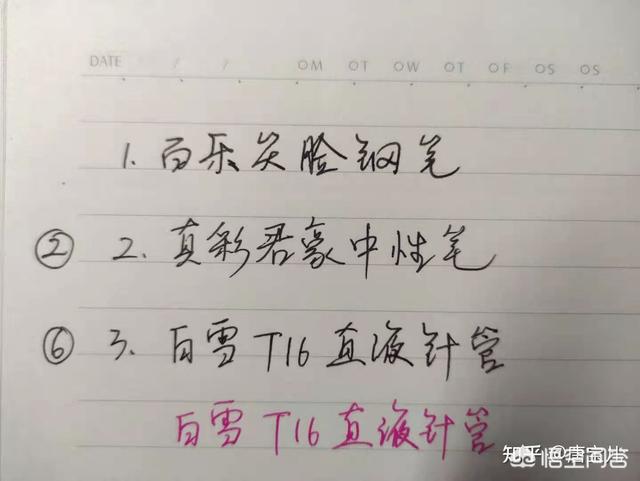 DATE / / OM OT OW OT OF OS OS
1. 百乐笑脸钢笔
② 2. 真彩君豪中性笔
⑥ 3. 白雪T16直液针管
白雪T16直液针管
知乎
悟空问答